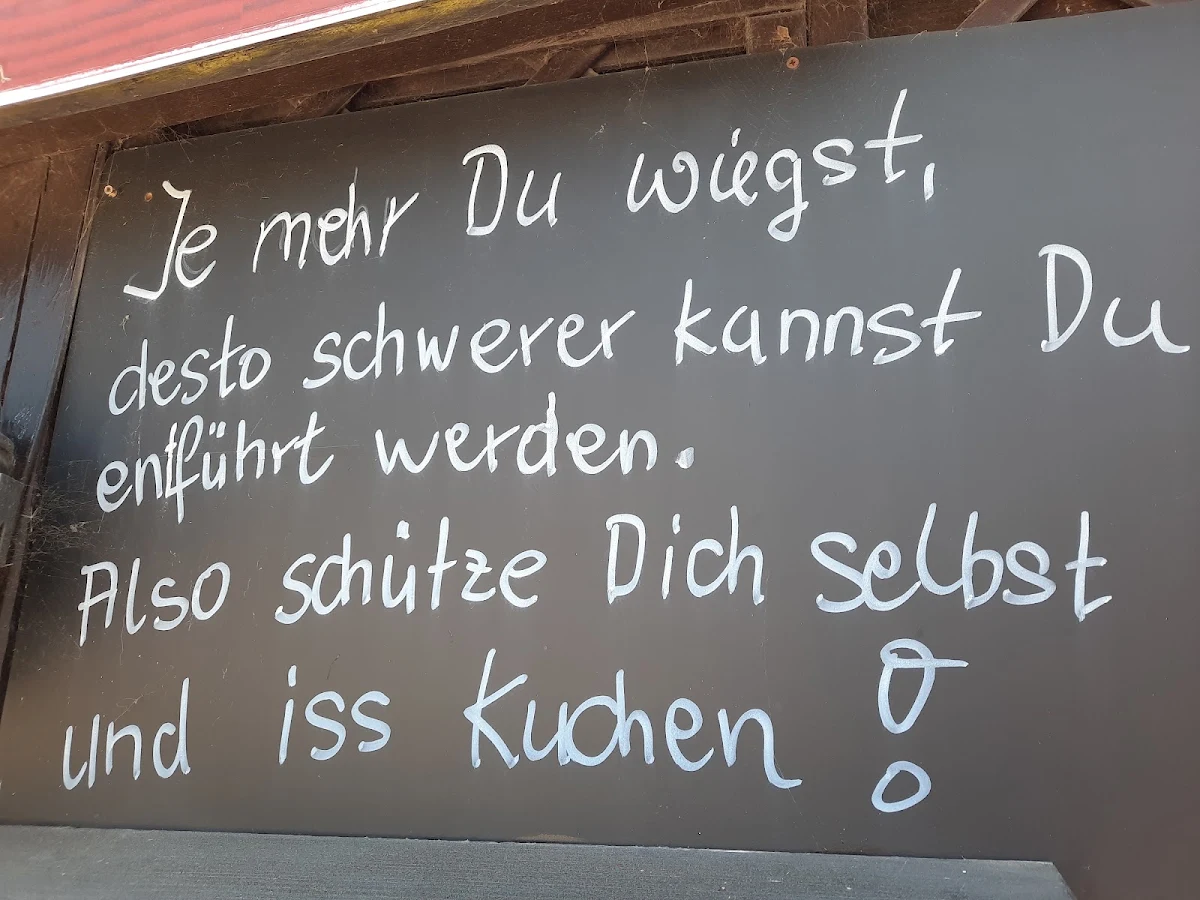 Je mehr Du wiegst,
desto schwerer kannst Du
entführt werden.
Also schütze Dich selbst
und iss Kuchen!